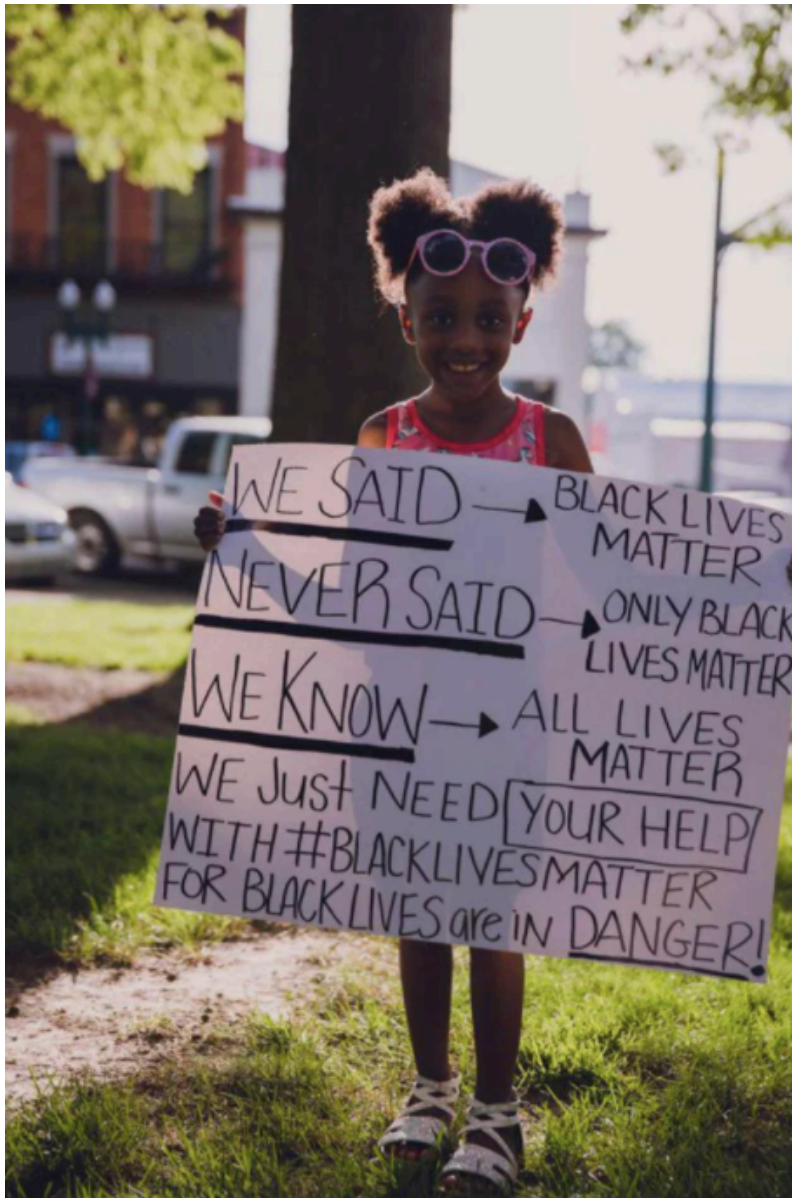 WE SAID → BLACK LIVES
MATTER
NEVER SAID → ONLY BLACK
LIVES MATTER
WE KNOW → ALL LIVES
MATTER
WE JUSt NEED YOUR HELP
WITH #BLACKLIVESMATTER
FOR BLACK LIVES are iN DANGER!